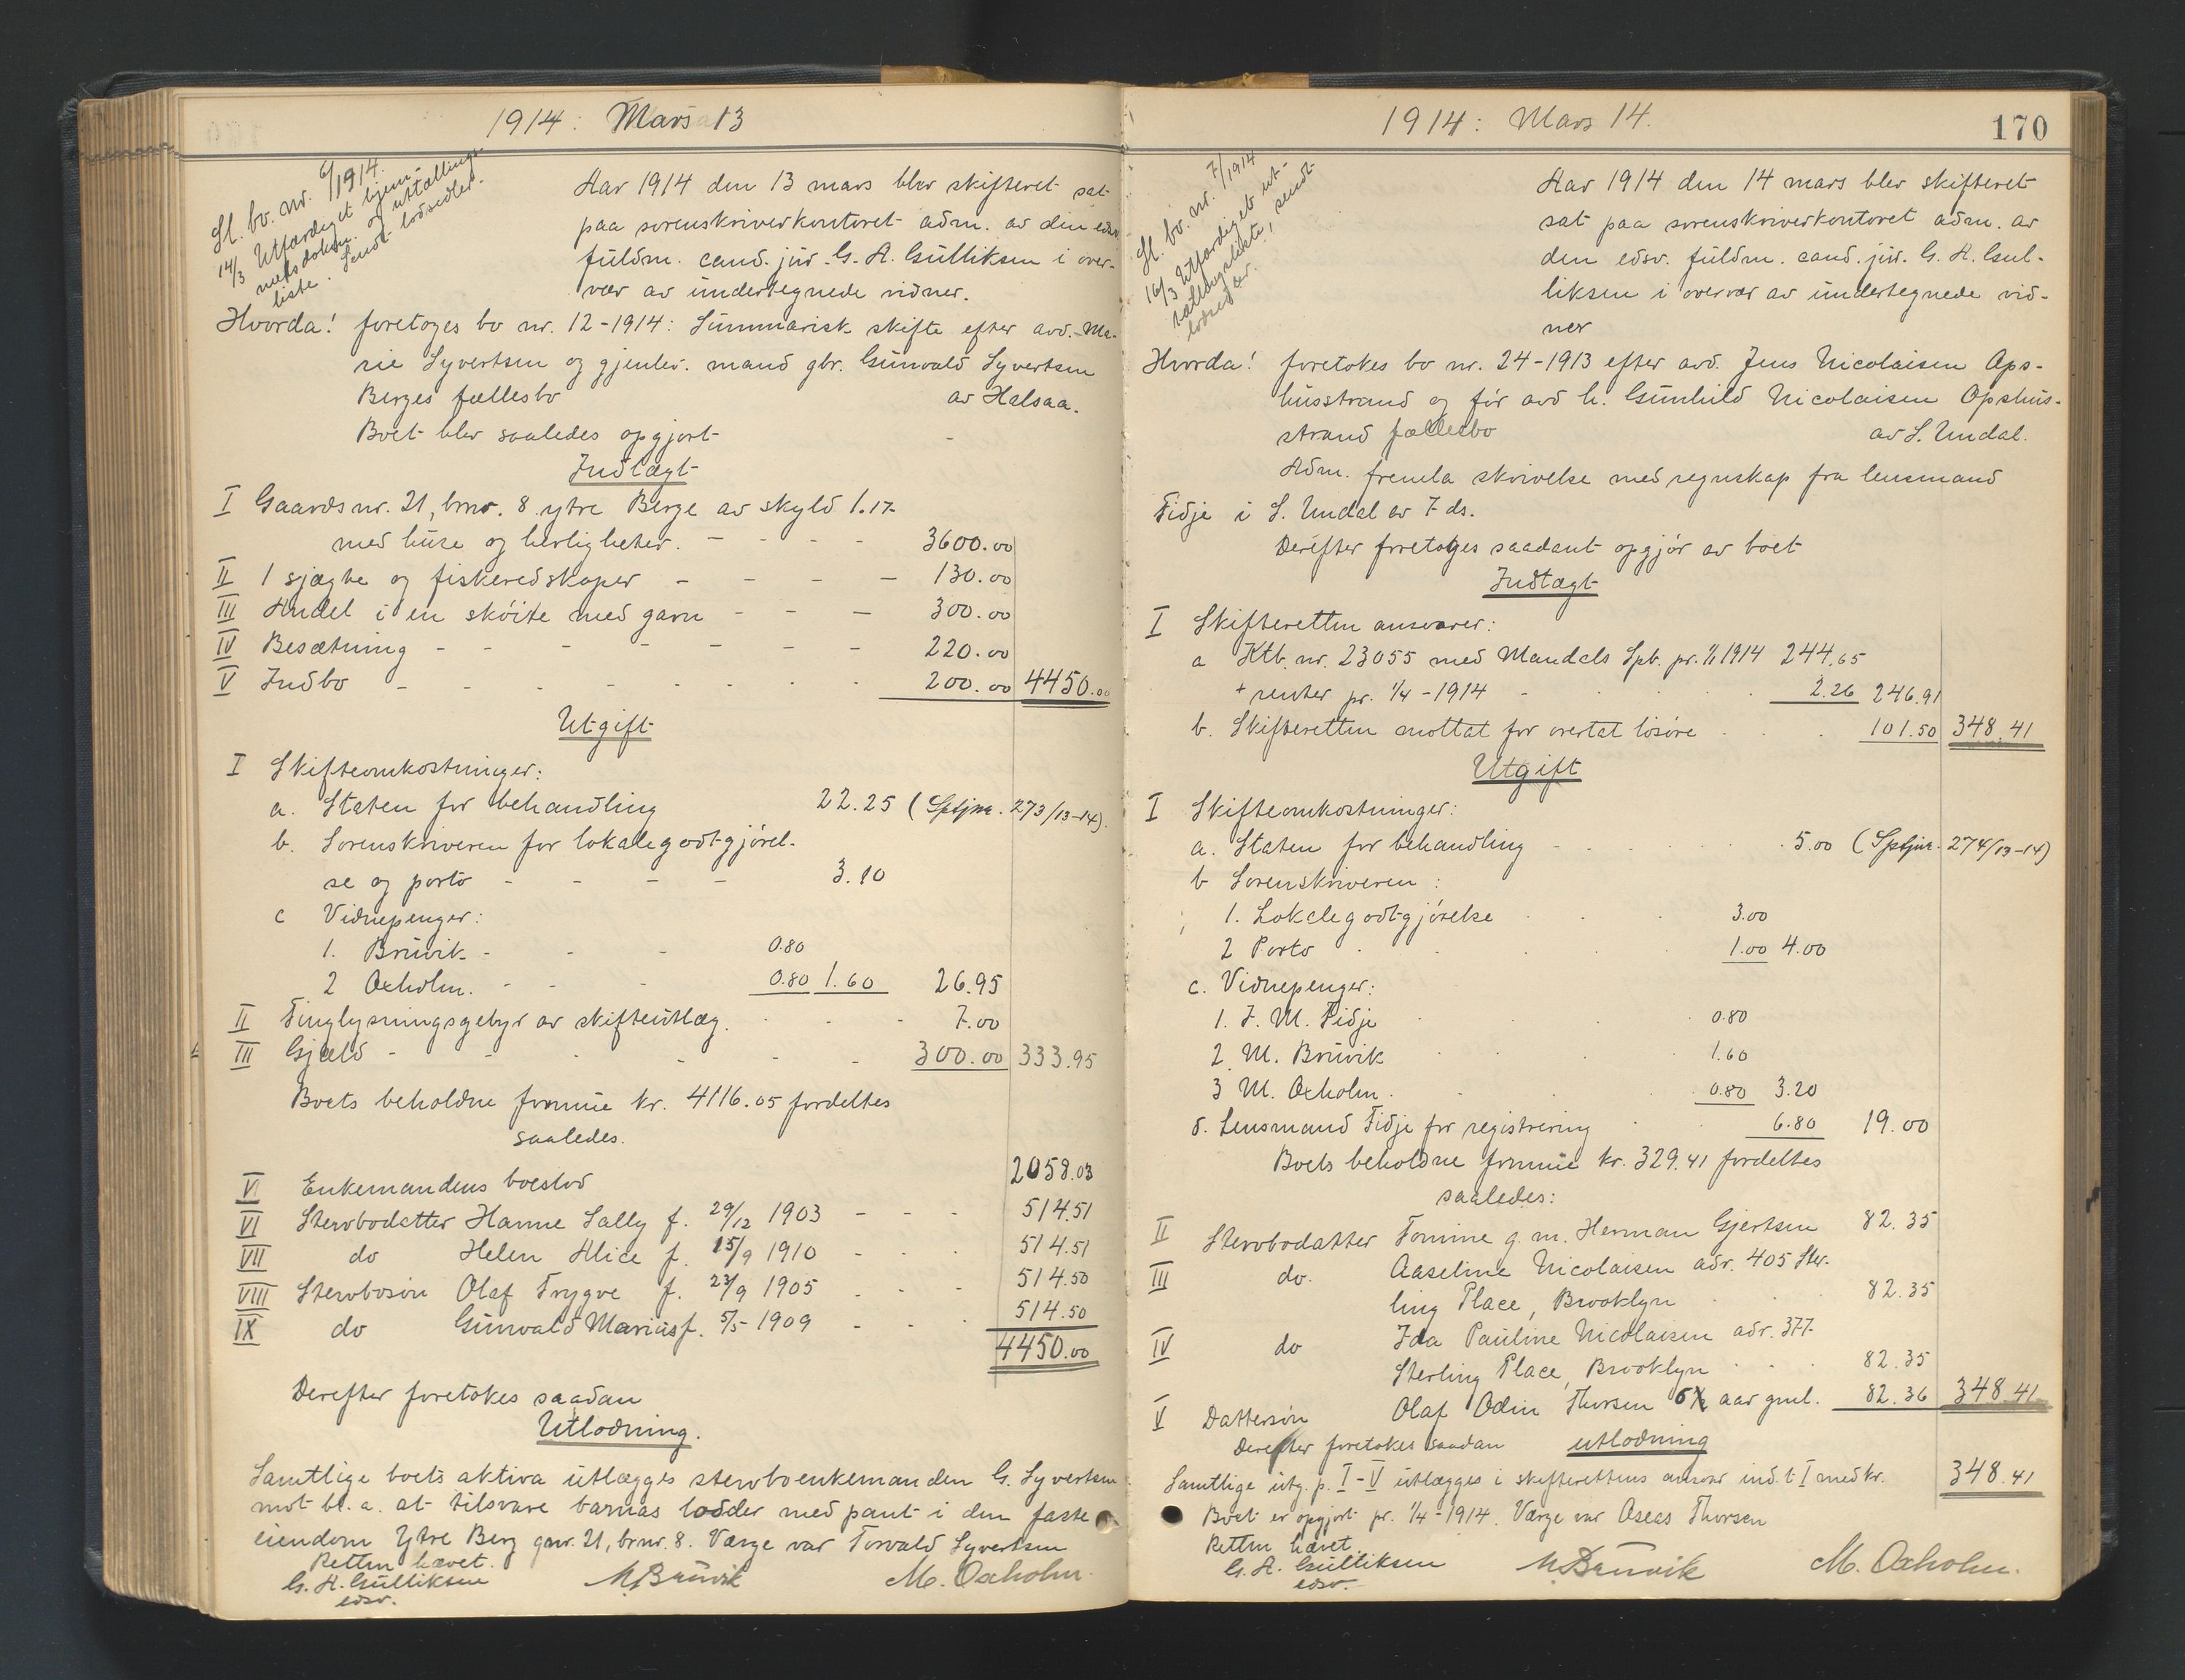 1914: Mars 13
Sl. bo. nr. 6/1914.
14/3 Utfærdiget hjem-
melsdokum. og utlællings-
liste. Sendt lodsedler.
Aar 1914 den 13 mars blev skifteret sat
paa sorenskriverkontoret adm. av den edsv.
fuldm. cand. jur. G. A. Gulliksen i over-
vær av undertegnede vidner.
Hvorda! foretoges bo nr. 12-1914: Summarisk skifte efter avd. Ma-
rie Syvertsen og gjenlev. mand gbr. Gunvald Syvertsen
Berges fællesbo av Halsaa.
Boet blev saaledes opgjort
Indtægt
I Gaardsnr. 21, brnr. 8 ytre Berge av skyld 1.17
med huse og herligheter. - - - - 3600.00
II 1 sjægte og fiskeredskaper - - - - 130.00
III Andel i en skøite med garn - - - 300.00
IV Besætning - - - - - - - 220.00
V Indbo - - - - - - - 200.00 4450.00
Utgift
I Skifteomkostninger:
a. Staten for behandling 22.25 (Sptjnr. 273/13-14).
b. Sorenskriveren for lokalegodtgjørel-
se og porto - - - - 3.10
c Vidnepenger:
1. Bruvik - - - 0.80
2 Oxholm. - - - 0.80 1.60 26.95
II Tinglysningsgebyr av skifteutlæg. - - - 7.00
III Gjæld - - - - - - 300.00 333.95
Boets beholdne formue kr. 4116.05 fordeltes
saaledes.
VI Enkemandens boeslod 2058.03
VI Stervbodatter Hanne Sally f. 29/12 1903 - - - 514.51
VII do Helen Alice f. 15/9 1910 - - - 514.51
VIII Stervbosøn Olaf Trygve f. 23/9 1905 - - - 514.50
IX do Gunvald Marius f. 5/5 1909 - - - 514.50
4450.00
Derefter foretokes saadan
Utlodning.
Samtlige boets aktiva utlægges stervboenkemanden G. Syvertsen
mot bl. a. at tilsvare barnas lodder med pant i den faste
eiendom Ytre Berg gnr. 21, brnr. 8. Værge var Torvald Syvertsen
Retten hævet.
G. A. Gulliksen M. Bruvik M. Oxholm.
edsv.
1914: Mars 14.
170
Sl. bo. nr. 7/1914
16/3 Utfærdiget ut-
lællingsliste, sendt
lodsedler.
Aar 1914 den 14 mars blev skifteret
sat paa sorenskriverkontoret adm. av
den edsv. fuldm. cand. jur. G. A. Gul-
liksen i overvær av undertegnede vid-
ner
Hvorda! foretokes bo nr. 24-1913 efter avd. Jens Nicolaisen Ops-
husstrand og før avd h. Gunhild Nicolaisen Opshus-
strand fællesbo av S. Undal.
Adm. fremla skrivelse med regnskap fra lensmand
Fidje i S. Undal av 7 ds.
Derefter foretoges saadant opgjør av boet
Indtægt
I Skifteretten ansvarer:
a Ktb. nr. 23055 med Mandals Spb. pr. 1/1 1914 244.65
+ renter pr. 1/4-1914 - 2.26 246.91
b. Skifteretten mottat for overtat løsøre . . . 101.50 348.41
Utgift
I Skifteomkostninger:
a. Staten for behandling - - - 5.00 (Sptjnr. 274/13-14)
b Sorenskriveren:
1. Lokalegodtgjørelse . . . 3.00
2 Porto . . . 1.00 4.00
c. Vidnepenger:
1. J. M. Fidje . . . 0.80
2. M. Bruvik . . . 1.60
3 M. Oxholm . . . 0.80 3.20
d. Lensmand Fidje for registrering . 6.80 19.00
Boets beholdne formue kr. 329.41 fordeltes
saaledes:
II Stervbodatter Tomine g. m. Herman Gjertsen 82.35
III do. Aaseline Nicolaisen adr. 405 Ster-
ling Place, Brooklyn . . 82.35
IV do Ida Pauline Nicolaisen adr. 377
Sterling Place, Brooklyn . . . 82.35
V Dattersøn Olaf Odin Thorsen 6½ aar gml. 82.36 348.41
Derefter foretokes saadan utlodning
Samtlige utg. p. I-V utlægges i skifterettens ansvar ind. t. I med kr. 348.41
Boet er opgjort pr. 1/4-1914. Værge var Aseas Thorsen
Retten hævet.
G. A. Gulliksen M. Bruvik M. Oxholm.
edsv.